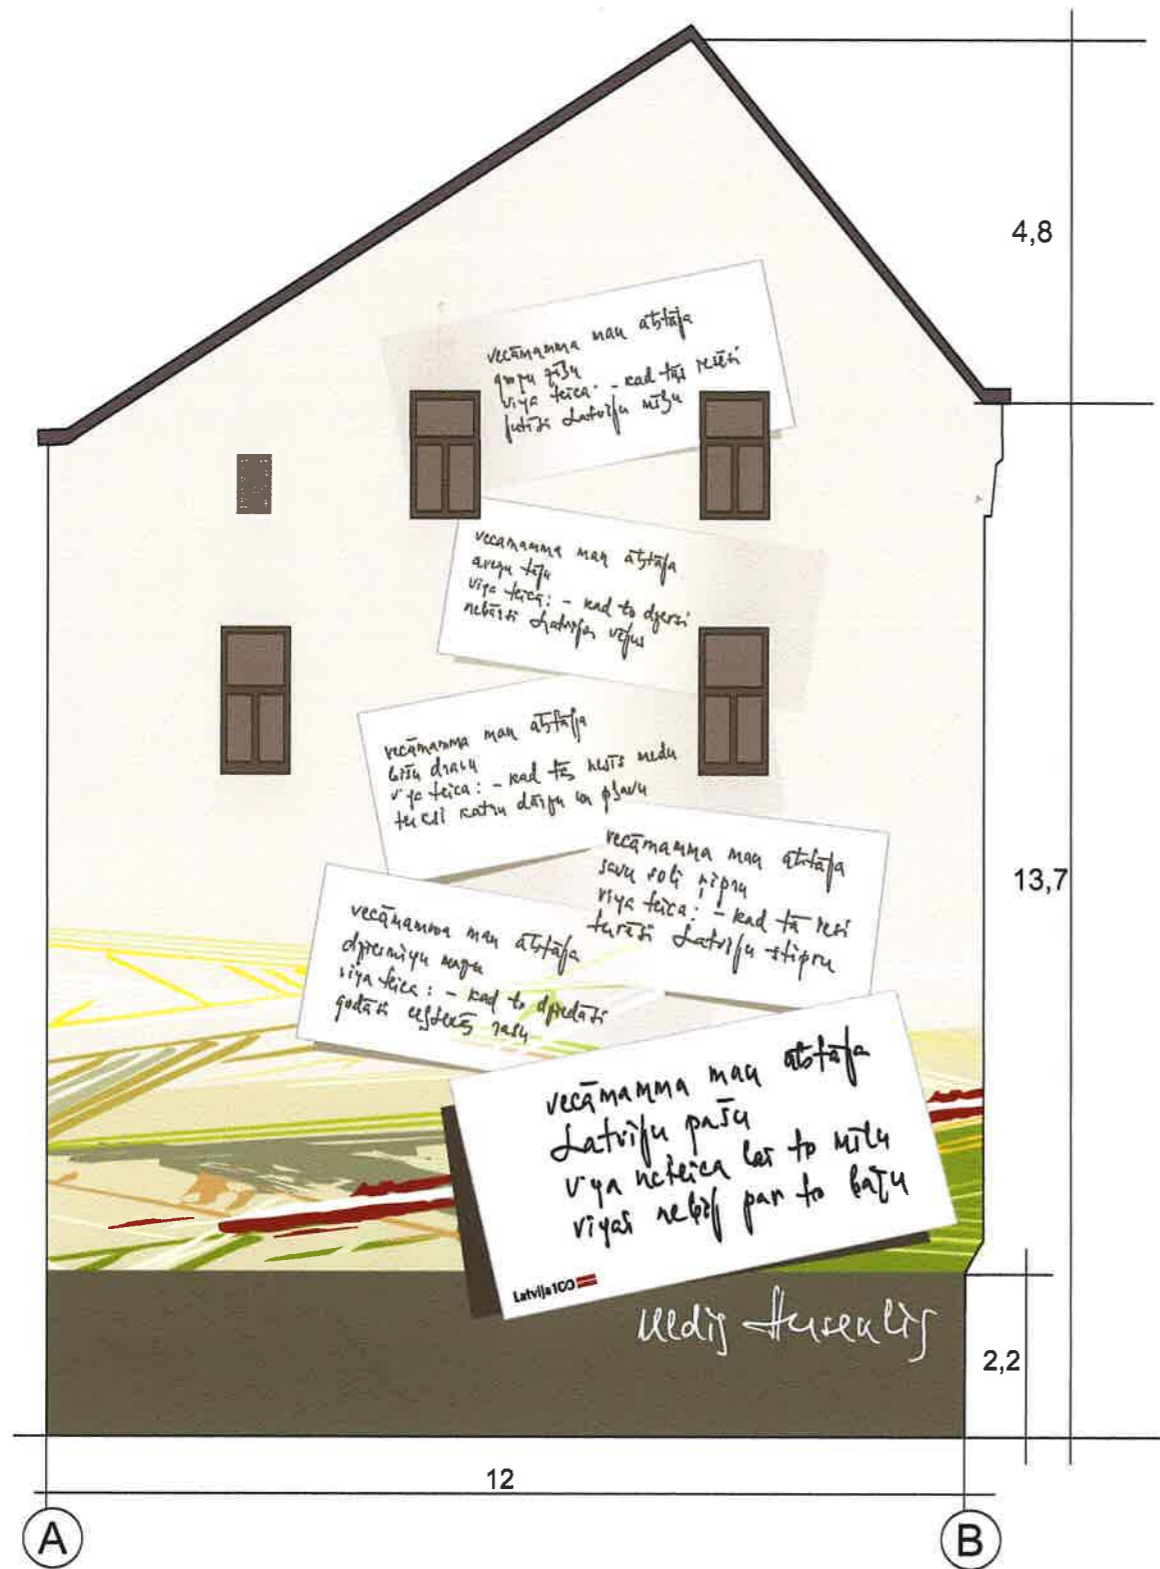 4,8
vecāmamma man atstāja
govju zīžu
viņa teica: - kad tās
jutīsi Latviju mīžu
vecāmamma man atstāja
aveņu tēju
viņa teica: - kad to dzersi
nebārsi Latvijas vējus
vecāmamma man atstāja
bišu dravu
viņa teica: - kad tās nesīs medu
teiksi katru dārzu un pļavu
vecāmamma man atstāja
savu soli ņipru
viņa teica: - kad tā iesi
turēsi Latviju stipru
13,7
vecāmamma man atstāja
dziesmiņu
viņa teica: - kad to dziedāsi
godāsi rasu
vecāmamma man atstāja
Latviju pašu
viņa neteica lai to mīlu
viņai nebij par to bažu
Latvija 100
2,2
12
A
B